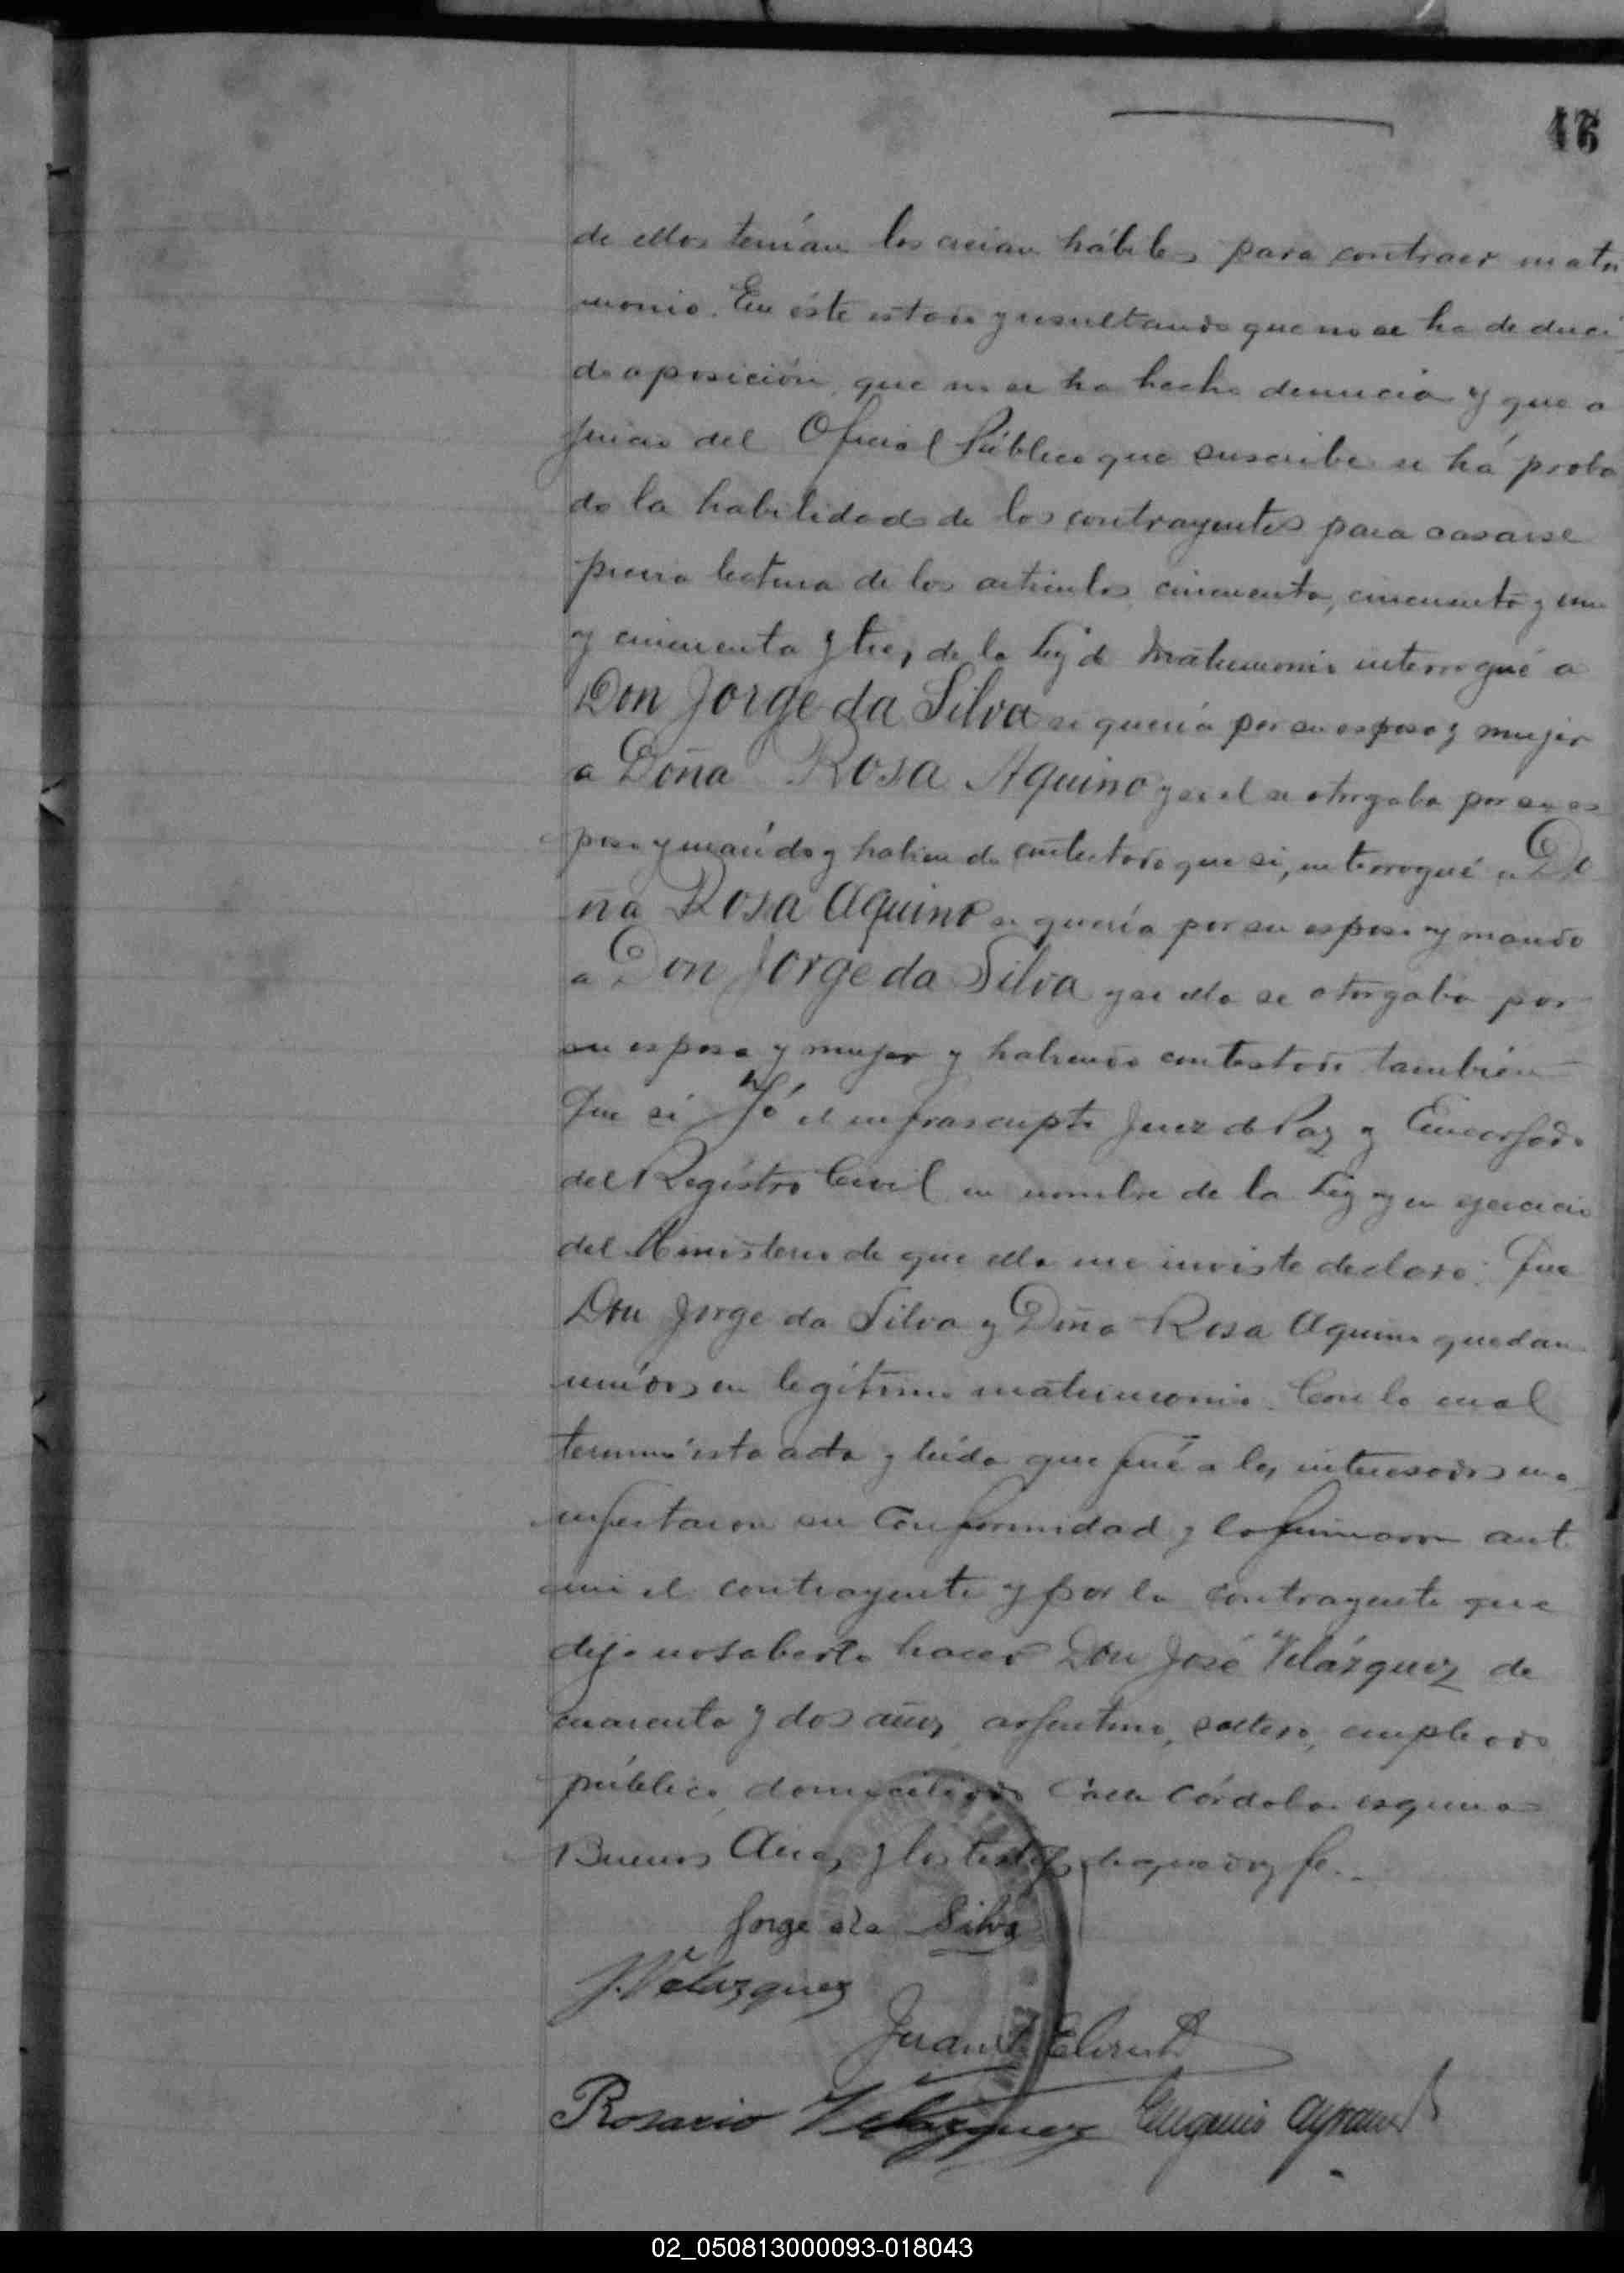 46
de ellos tenían los creían hábiles para contraer matri
monio. En éste estado y resultando que no se ha deduci
do oposición, que no se ha hecho denuncia y que a
juicio del Oficial Público que suscribe se há proba
do la habilidad de los contrayentes para casarse
previa lectura de los artículos cincuenta, cincuenta y uno
y cincuenta y tres de la Ley de Matrimonio interrogué a
Don Jorge da Silva si quería por su esposa y mujer
a Doña Rosa Aquino y si el se otorgaba por su es
poso y marído y habiendo contestado que si, interrogué a Do
ña Rosa Aquino si quería por su esposo y marido
a Don Jorge da Silva y si ella se otorgaba por
su esposa y mujer y habiendo contestado también
Que si Yó el infrascripto Juez de Paz y Encargado
del Registro Civil en nombre de la Ley y en ejercicio
del Ministerio de que ella me inviste declaro: Que
Don Jorge da Silva y Doña Rosa Aquino quedan
unídos en legítimo matrimonio. Con lo cual
terminó esta acta y leída que fué a los interesados ma
nifestaron su Conformidad y la firmaron ante
mi el contrayente y por la contrayente que
dijo no saberlo hacer Don José Velázquez de
cuarenta y dos años, argentino, soltero, empleado
público, domiciliado Calle Córdoba esquina
Buenos Aires y los testigos de que doy fe.
Jorge da Silva
J. Velazquez
Juan
Rosario Velazquez Eugenio
02_050813000093-018043